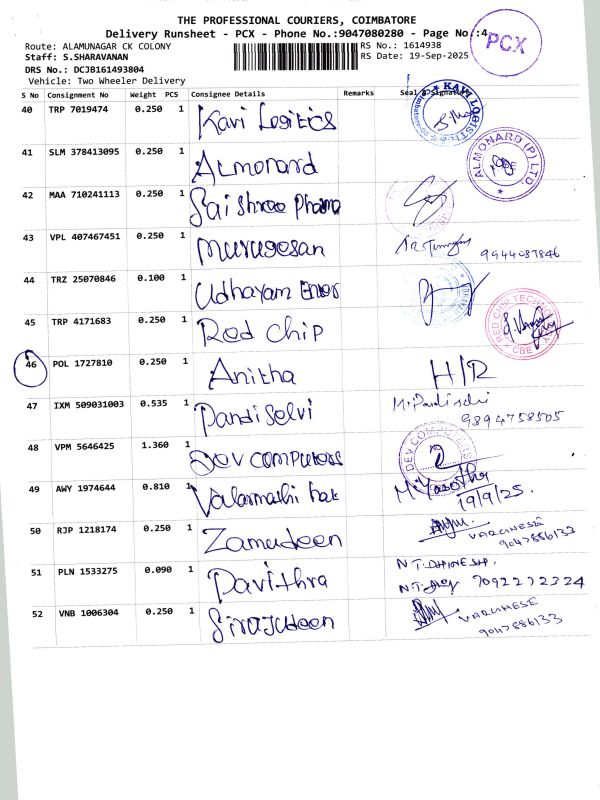 THE PROFESSIONAL COURIERS, COIMBATORE
Delivery Runsheet - PCX - Phone No.:9047080280 - Page No.:4
PCX
Route: ALAMUNAGAR CK COLONY
RS No.: 1614938
Staff: S.SHARAVANAN
RS Date: 19-Sep-2025
DRS No.: DCJB161493804
Vehicle: Two Wheeler Delivery
S No Consignment No Weight PCS Consignee Details Remarks Seal & Signature
40 TRP 7019474 0.250 1 Kavi Logitics
KAVI LOGISTICS
41 SLM 378413095 0.250 1 Almonard
ALMONARD (P) LTD.
42 MAA 710241113 0.250 1 Sai Shree Pharma
43 VPL 407467451 0.250 1 Murugesan
9944087846
44 TRZ 25070846 0.100 1 Udhayam
45 TRP 4171683 0.250 1 Red Chip
RED CHIP TECHNO
CBE
46 POL 1727810 0.250 1 Anitha H/R
47 IXM 509031003 0.535 1 Pandiselvi M. Pandiselvi
9894758505
48 VPM 5646425 1.360 1 Dev Computers
DEV COMPUTERS
49 AWY 1974644 0.810 1 Valarmathi
19/9/25.
50 RJP 1218174 0.250 1 Zamudeen VARGHESE
9047886133
51 PLN 1533275 0.090 1 Pavithra N.T. DHINESH.
7092272324
52 VNB 1006304 0.250 1 Sirajudeen VARGHESE
9047886133